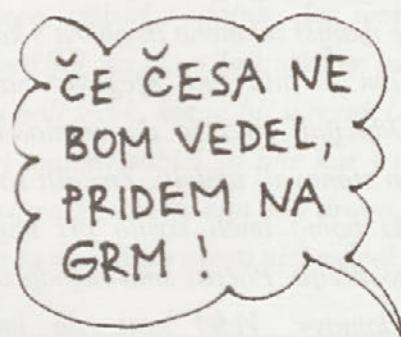 ČE ČESA NE
BOM VEDEL,
PRIDEM NA
GRM !